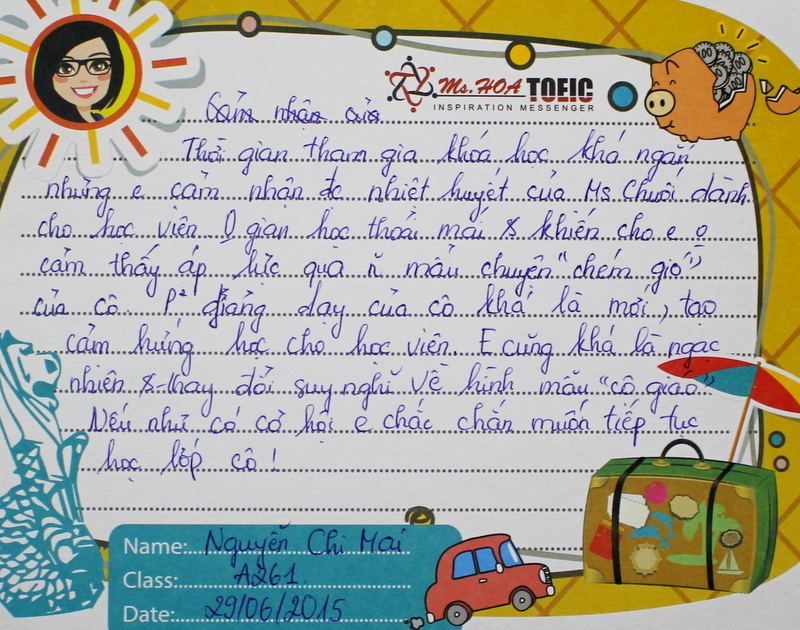 Ms. HOA TOEIC
INSPIRATION MESSENGER
Cảm nhận của
Thời gian tham gia khóa học khá ngắn
nhưng e cảm nhận đc nhiệt huyết của Ms. Chuối dành
cho học viên. O gian học thoải mái & khiến cho e o
cảm thấy áp lực qua n mẩu chuyện "chém gió"
của cô. P² giảng dạy của cô khá là mới, tạo
cảm hứng học cho học viên. E cũng khá là ngạc
nhiên & thay đổi suy nghĩ về hình mẫu "cô giáo"
Nếu như có cơ hội e chắc chắn muốn tiếp tục
học lớp cô!
Name: Nguyễn Chi Mai
Class: A261
Date: 29/06/2015